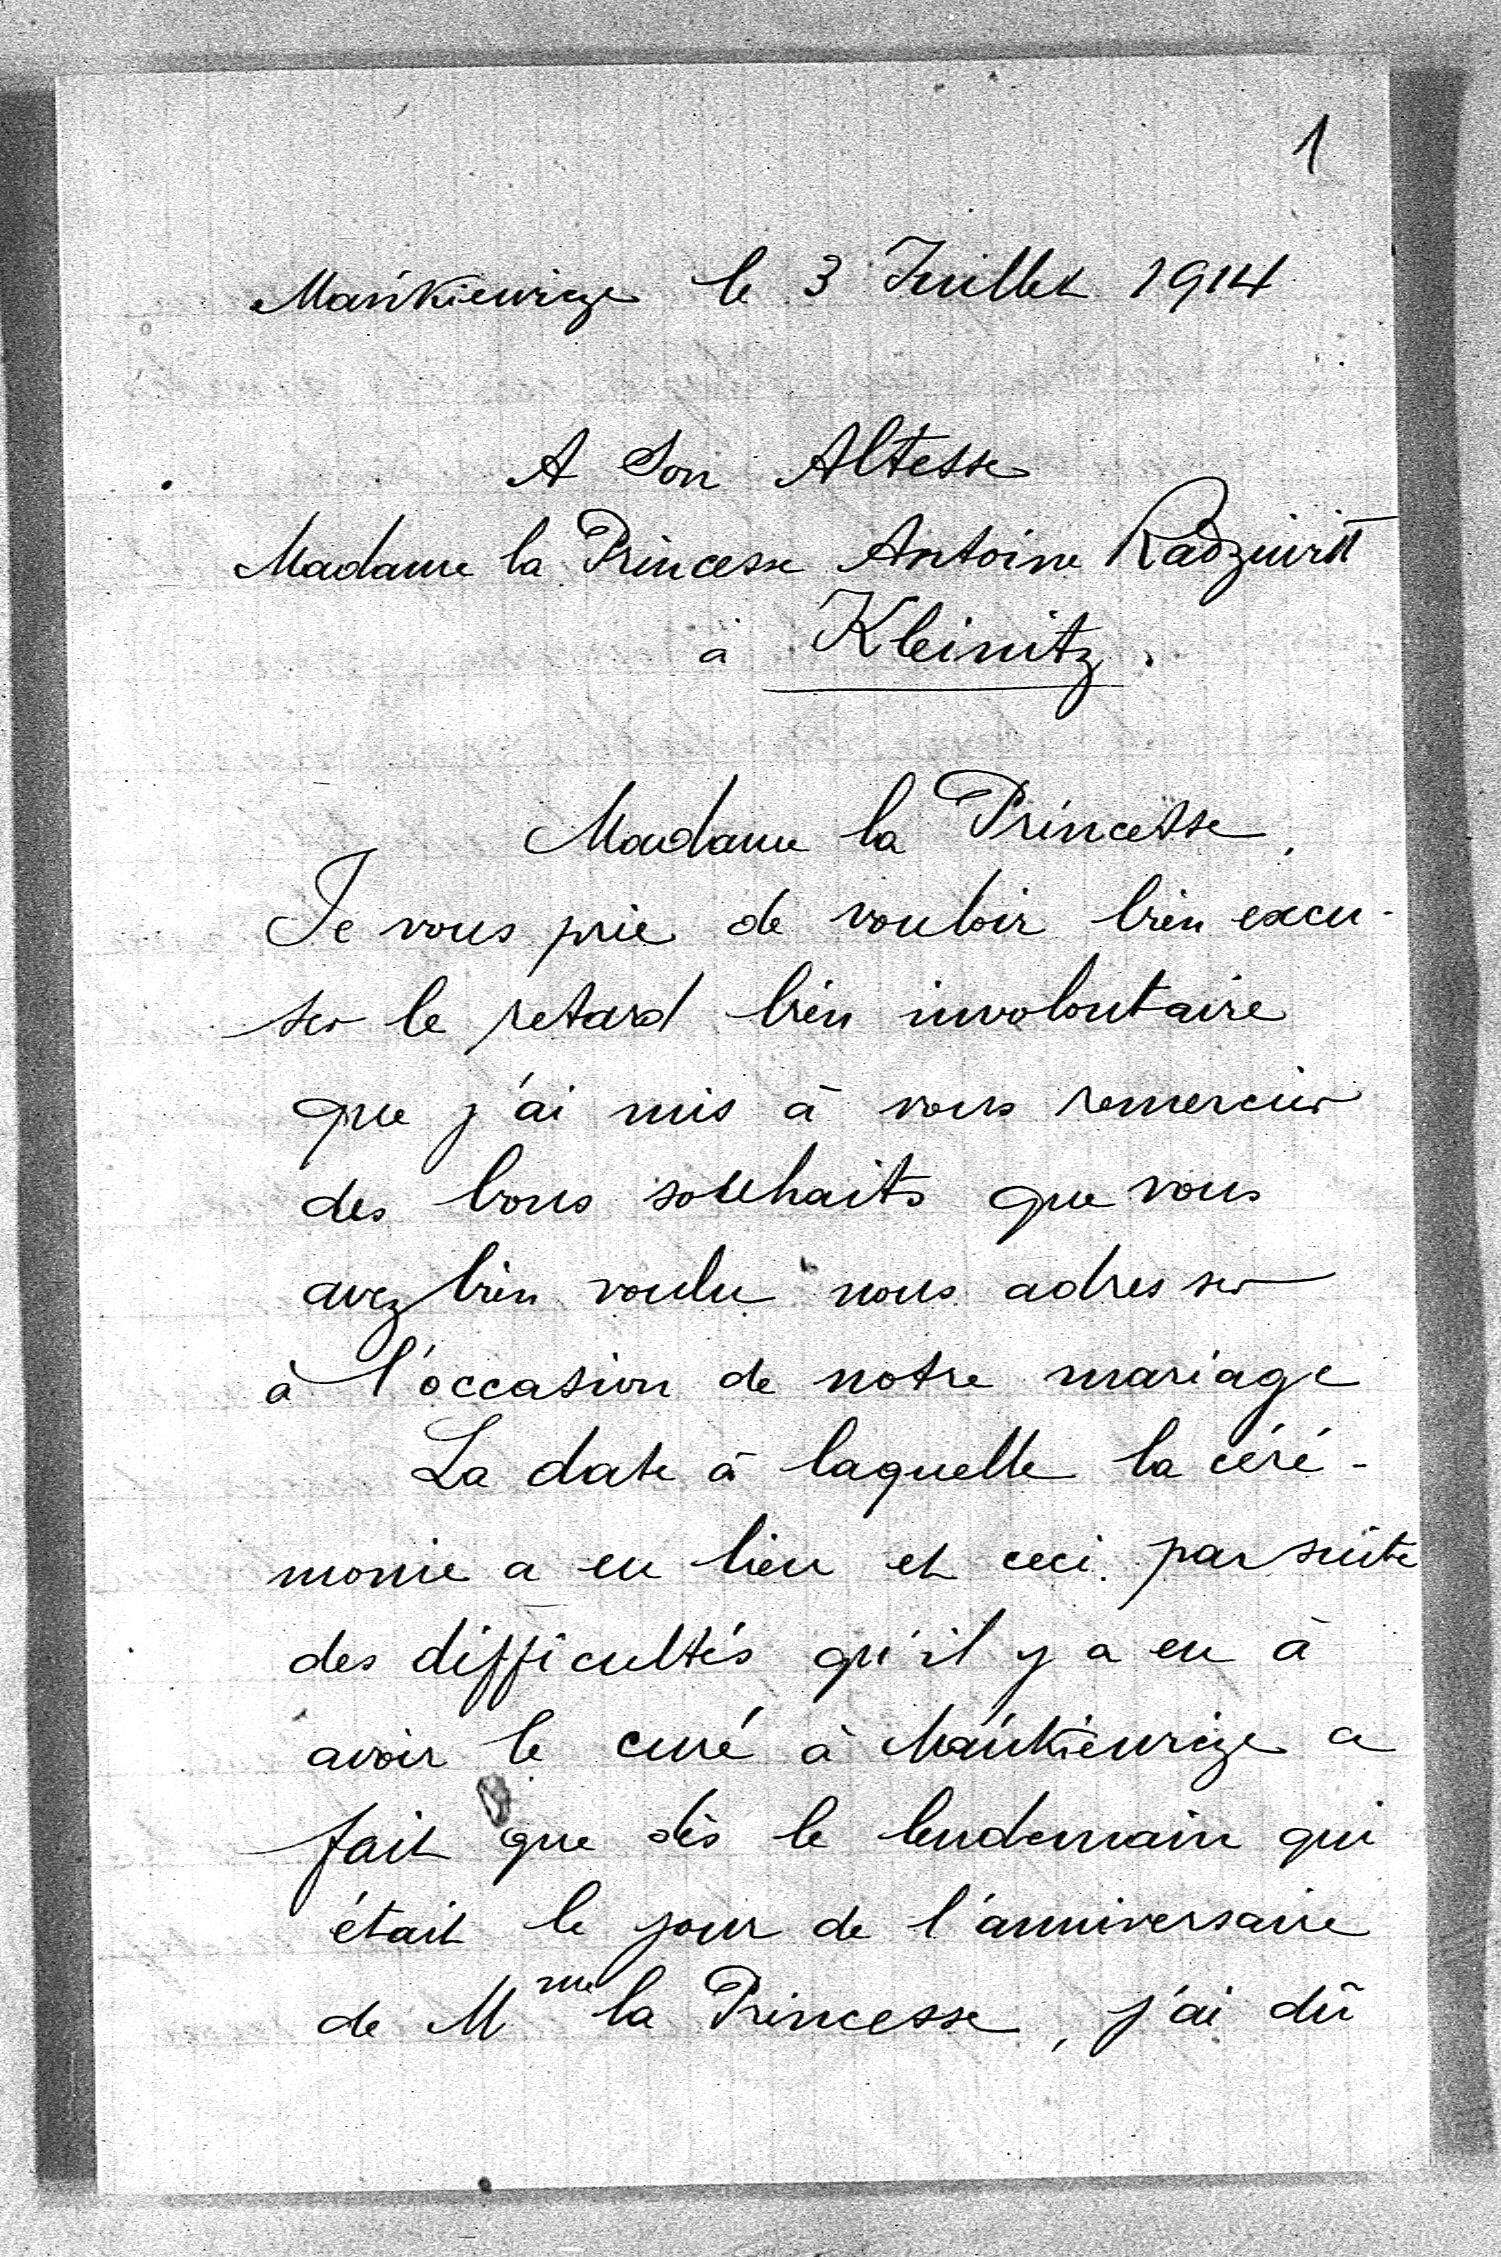 1
Mańkiewicze le 3 Juillet 1914
A Son Altesse
Madame la Princesse Antoine Radziwiłł
à Kleinitz.
Madame la Princesse,
Je vous prie de vouloir bien excu-
ser le retard bien involontaire
que j'ai mis à vous remercier
des bons souhaits que vous
avez bien voulu nous adresser
à l'occasion de notre mariage
La date à laquelle la céré-
monie a eu lieu et ceci par suite
des difficultés qu'il y a eu à
avoir le curé à Mańkiewicze a
fait que dès le lendemain qui
était le jour de l'anniversaire
de Mme la Princesse, j'ai dû